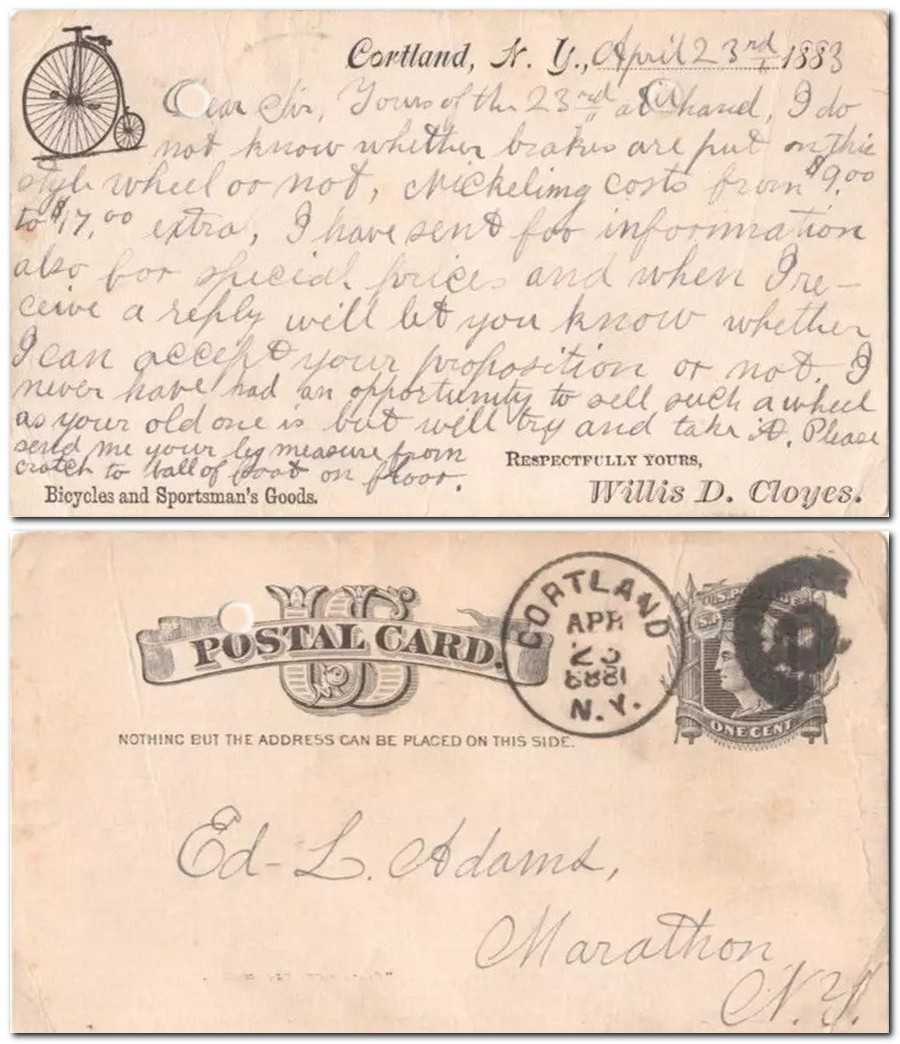 Cortland, N. Y., April 23rd 1883
Dear Sir, Yours of the 23rd at hand, I do
not know whether brakes are put on this
style wheel or not, Nickeling costs from $9.00
to $17.00 extra, I have sent for information
also for special prices and when I re-
ceive a reply will let you know whether
I can accept your proposition or not. I
never have had an opportunity to sell such a wheel
as your old one is but will try and take it. Please
send me your leg measure from
crotch to ball of foot on floor.
RESPECTFULLY YOURS,
Bicycles and Sportsman's Goods.
Willis D. Cloyes.
US
POSTAL CARD.
NOTHING BUT THE ADDRESS CAN BE PLACED ON THIS SIDE.
CORTLAND
APR
23
N.Y.
ONE CENT
Ed- L. Adams,
Marathon
N.Y.